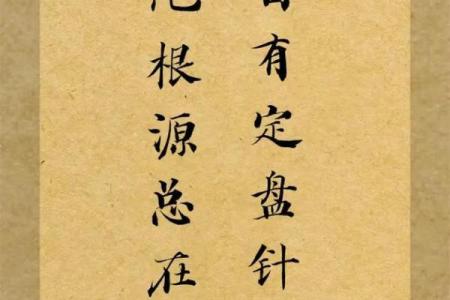 有定盘针
根源总在